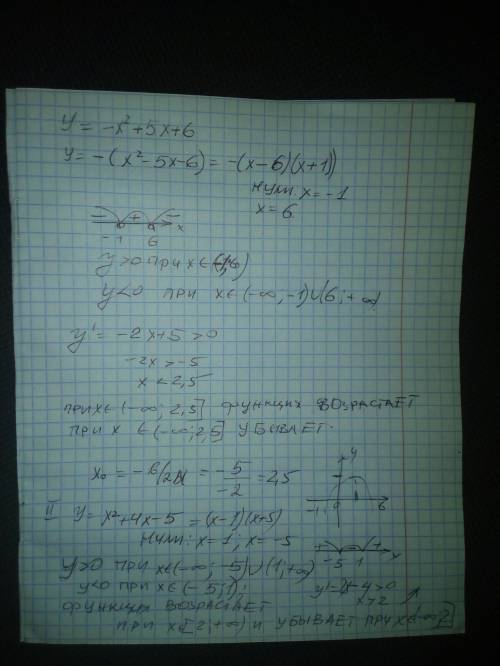 y = -x²+5x+6
y = -(x²-5x-6) = -(x-6)(x+1)
нули: x = -1
x = 6
- + - x
-1 6
y>0 при x∈(-1;6)
y<0 при x∈(-∞;-1)∪(6;+∞)
y' = -2x+5 >0
-2x > -5
x < 2,5
при x∈(-∞; 2,5] функция возрастает
при x ∈(-∞;2,5] убывает.
x₀ = -b/2a = -5/-2 = 2,5
y
-1 0 6
II y = x²+4x-5 = (x-1)(x+5)
нули: x = 1; x = -5
+ - + x
-5 1
y>0 при x∈(-∞; -5)∪(1;+∞)
y<0 при x∈(-5;1)
x>2
функция возрастает
при x[2;+∞) и убывает при x∈(-∞;2]